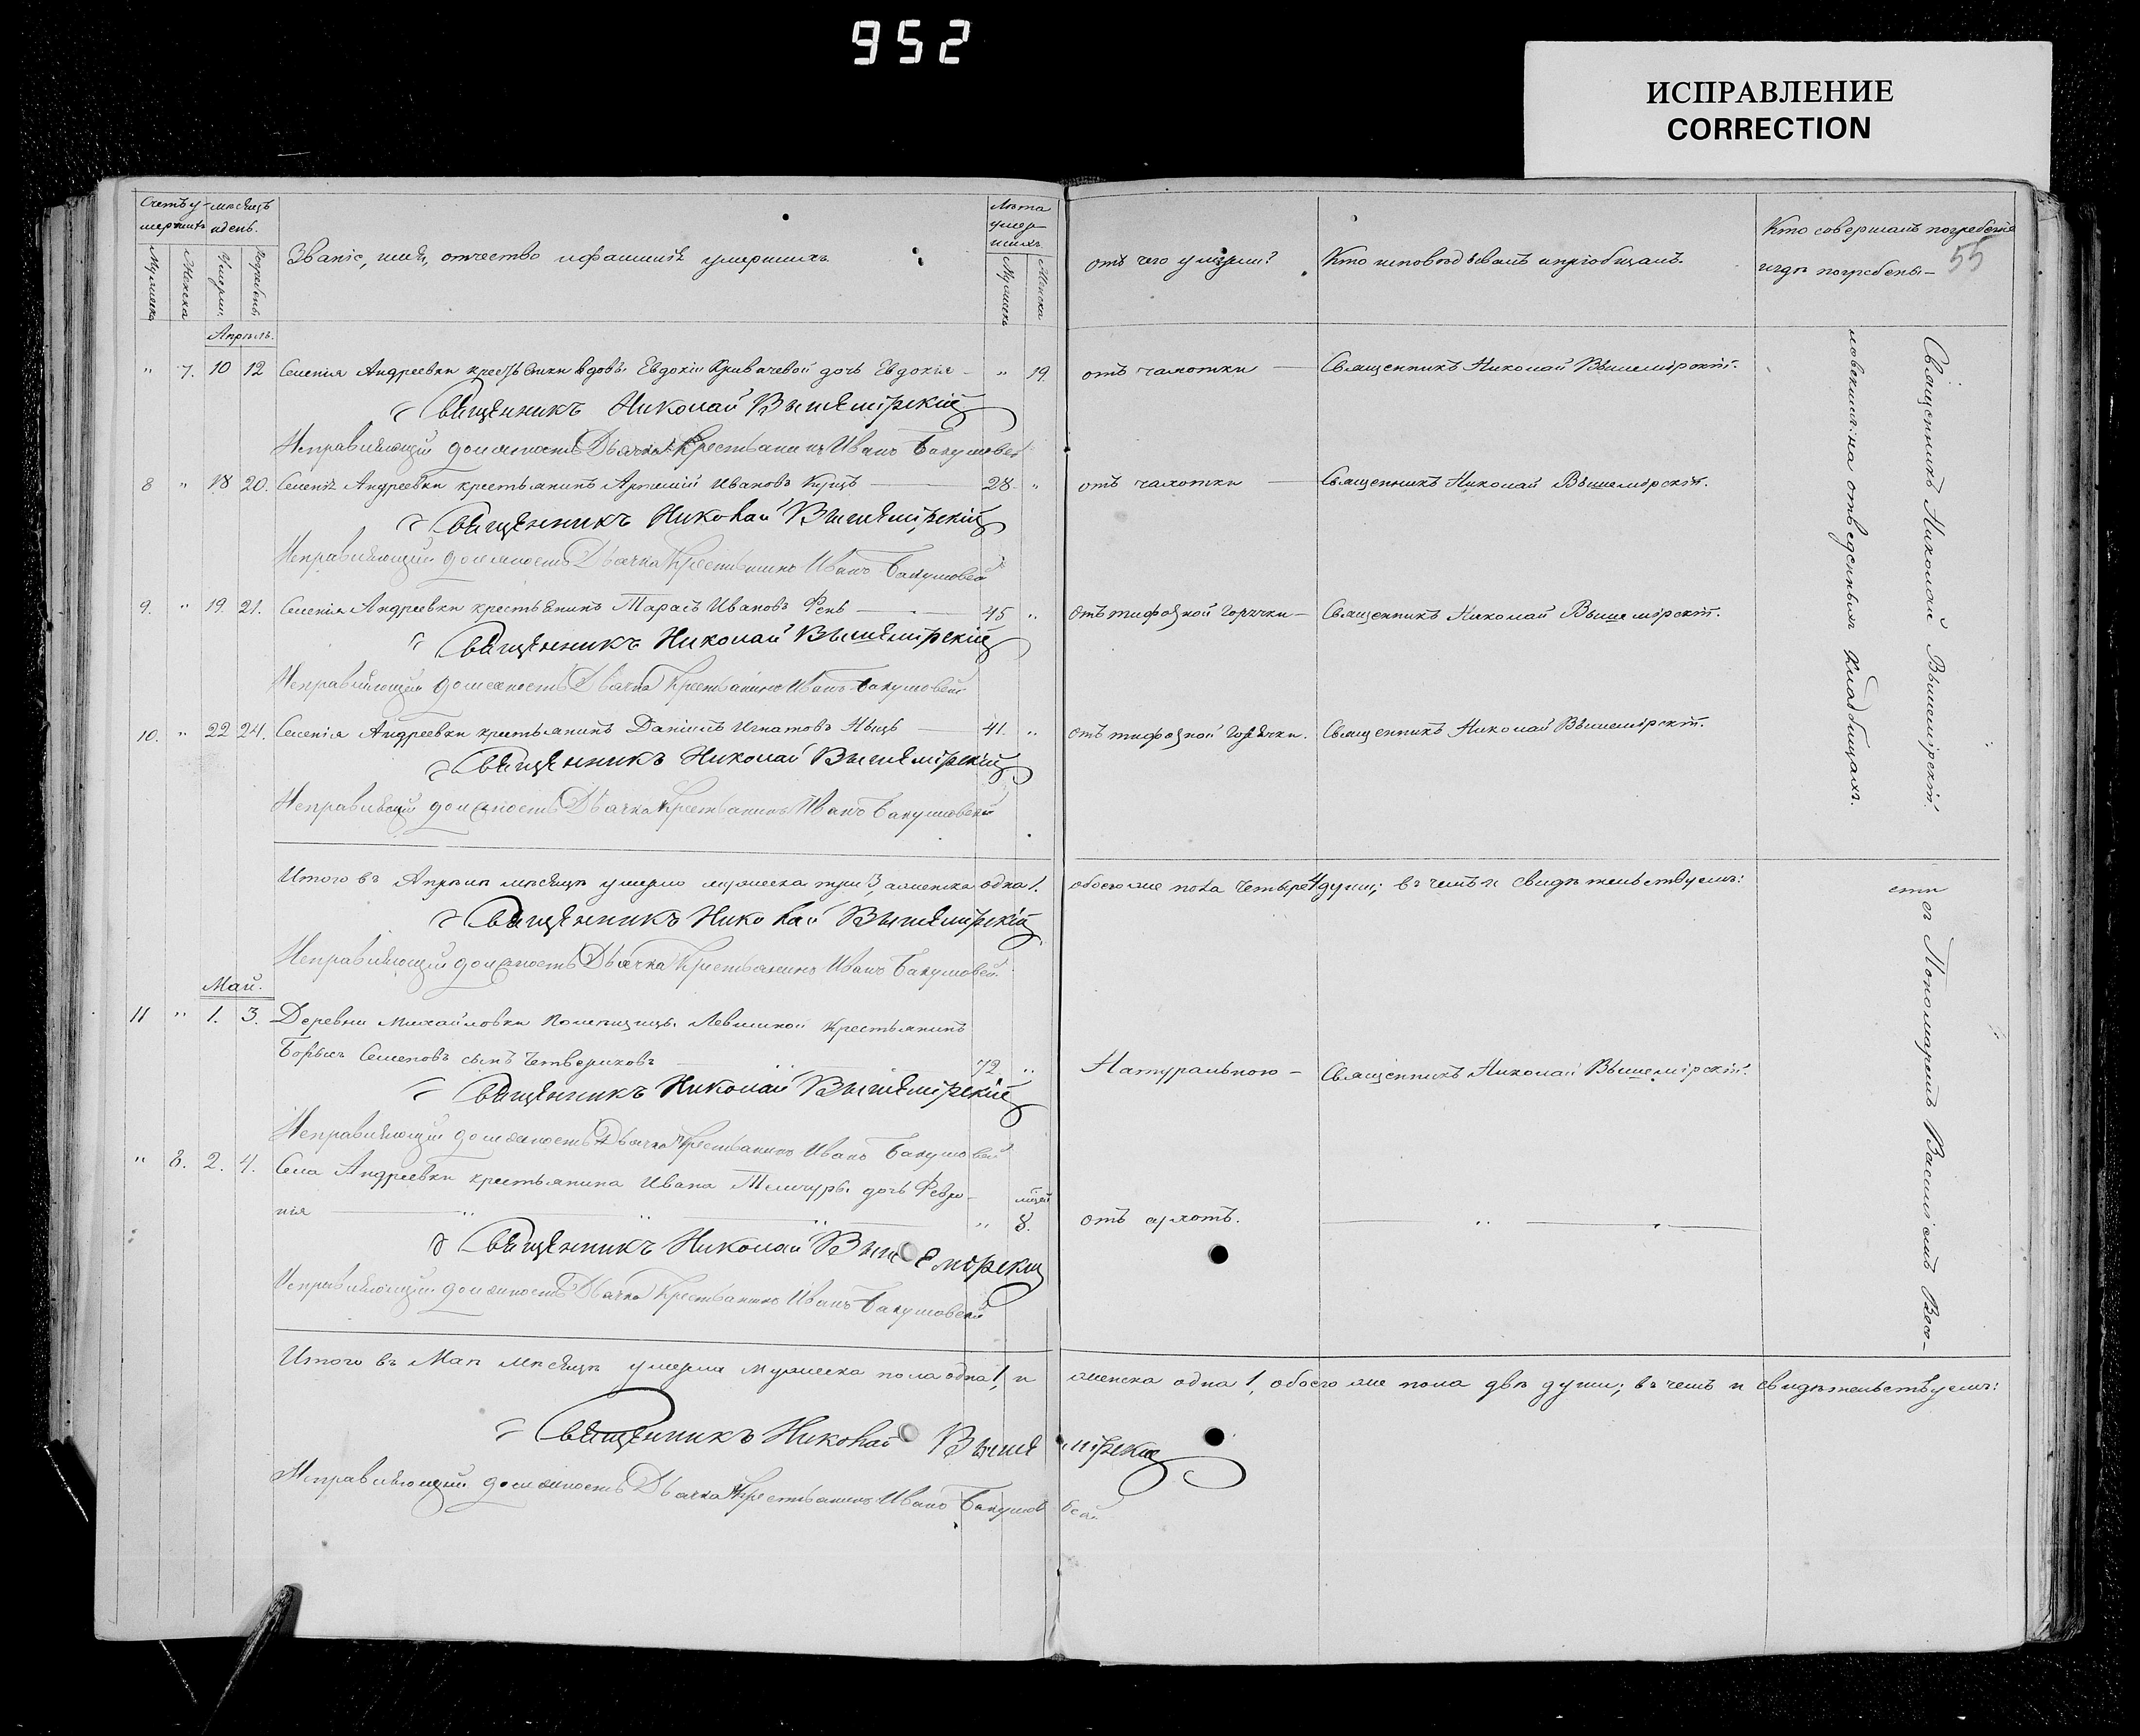 952
ИСПРАВЛЕНИЕ
CORRECTION
Счетъ умершихъ
мѣсяцъ и день.
Мужеска
Женска
Умерли.
Погребены.
Званіе, имя, отчество и фамилія умершихъ
Лѣта умершихъ
Мужеска
Женска
отъ чего умерли?
Кто исповѣдывалъ и пріобщалъ.
Кто совершалъ погребеніе
и гдѣ погребены
55
Апрѣль.
" 7. 10 12 Селенія Андреевки крестьянки вдовы Евдокіи Кривачевой дочь Евдокія " 19. отъ чахотки — Священникъ Николай Вышемірскій.
Священникъ Николай Вышемірскій
Исправляющій должность Дьячка Крестьянинъ Иванъ
8 " 18 20. Селенія Андреевки крестьянинъ Артемій Ивановъ 28. " отъ чахотки — Священникъ Николай Вышемірскій.
Священникъ Николай Вышемірскій
Исправляющій должность Дьячка Крестьянинъ Иванъ
9. " 19. 21. Селенія Андреевки крестьянинъ Тарасъ Ивановъ 45 " отъ тифозной горячки — Священникъ Николай Вышемірскій.
Священникъ Николай Вышемірскій
Исправляющій должность Дьячка Крестьянинъ Иванъ
10. " 22 24. Селенія Андреевки крестьянинъ Даніилъ Игнатовъ 41. " отъ тифозной горячки. Священникъ Николай Вышемірскій.
Священникъ Николай Вышемірскій
Исправляющій должность Дьячка Крестьянинъ Иванъ
Итого въ Апрѣлѣ мѣсяцѣ умерло мужеска три 3, а женска одна 1. обоего же пола четыре 4 души; въ чемъ и свидѣтельствуемъ:
Священникъ Николай Вышемірскій
Исправляющій должность Дьячка Крестьянинъ Иванъ
Май.
11 " 1. 3. Деревни Михайловки Помещицы Левшиной крестьянинъ
Борисъ Семеновъ сынъ Четвериковъ 72. " Натуральною — Священникъ Николай Вышемірскій.
Священникъ Николай Вышемірскій
Исправляющій должность Дьячка Крестьянинъ Иванъ
" 8. 2. 4. Села Андреевки крестьянина Ивана дочь Февро-
нія " 8. отъ
Священникъ Николай Вышемірскій
Исправляющій должность Дьячка Крестьянинъ Иванъ
Итого въ Маѣ мѣсяцѣ умерло мужеска пола одна 1, и женска одна 1, обоего же пола двѣ души; въ чемъ и свидѣтельствуемъ:
Священникъ Николай Вышемірскій
Исправляющій должность Дьячка Крестьянинъ Иванъ
Священникъ Николай Вышемірскій
съ Пономаремъ Василіемъ
на отведенныхъ кладбищахъ.